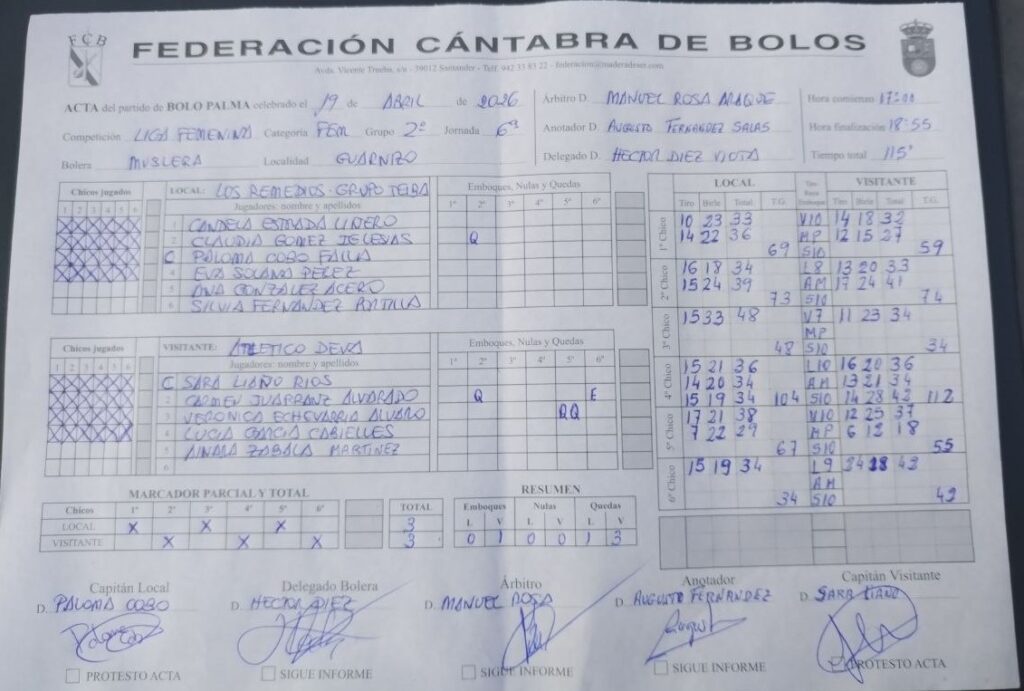 FCB
FEDERACIÓN CÁNTABRA DE BOLOS
ACTA del partido de BOLO PALMA celebrado el 19 de ABRIL de 2026
Competición LIGA FEMENINA Categoría FEM Grupo 2º Jornada 6ª
Bolera MUSLERA Localidad GUARNIZO
Árbitro D. MANUEL ROSA ARAQUE
Anotador D. AUGUSTO FERNANDEZ SALAS
Delegado D. HECTOR DIEZ VIOTA
Hora comienzo 17:00
Hora finalización 18:55
Tiempo total 115'
Chicos jugados
1 2 3 4 5 6
LOCAL: LOS REMEDIOS-GRUPO TEIBA
Jugadores: nombre y apellidos
1 CANDELA ESTRADA LINERO
2 CLAUDIA GOMEZ IGLESIAS
C PALOMA COBO FALLA
4 EVA SOLANA PEREZ
5 ANA GONZALEZ ACERO
6 SILVIA FERNANDEZ PORTILLA
Emboques, Nulas y Quedas
1º 2º 3º 4º 5º 6º
Q
Chicos jugados
1 2 3 4 5 6
VISITANTE: ATLETICO DEVA
Jugadores: nombre y apellidos
C SARA LIAÑO RIOS
2 CARMEN JUARRANZ ALVARADO
3 VERONICA ECHEVARRIA ALVARO
4 LUCIA GARCIA CABIELLES
5 AINARA ZABALA MARTINEZ
6
Emboques, Nulas y Quedas
1º 2º 3º 4º 5º 6º
Q E
QQ
LOCAL VISITANTE
Tiro Birle Total T.G. Tiro Raya Emboque Tiro Birle Total T.G.
1º Chico
10 23 33 V10 14 18 32
14 22 36 MP 12 15 27
69 S10 59
2º Chico
16 18 34 L8 13 20 33
15 24 39 AM 17 24 41
73 S10 74
3º Chico
15 33 48 V7 11 23 34
MP
48 S10 34
4º Chico
15 21 36 L10 16 20 36
14 20 34 AM 13 21 34
15 19 34 104 S10 14 28 42 112
5º Chico
17 21 38 V10 12 25 37
7 22 29 MP 6 12 18
67 S10 55
6º Chico
15 19 34 L9 42
AM
34 S10
MARCADOR PARCIAL Y TOTAL
Chicos 1º 2º 3º 4º 5º 6º TOTAL
LOCAL X X X 3
VISITANTE X X X 3
RESUMEN
Emboques Nulas Quedas
L V L V L V
0 1 0 0 1 3
Capitán Local
D. PALOMA COBO
PROTESTO ACTA
Delegado Bolera
D. HECTOR DIEZ
SIGUE INFORME
Árbitro
D. MANUEL ROSA
SIGUE INFORME
Anotador
D. AUGUSTO FERNANDEZ
SIGUE INFORME
Capitán Visitante
D. SARA LIAÑO
PROTESTO ACTA